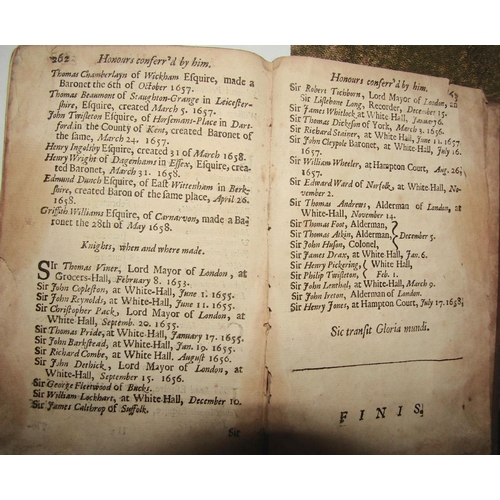 262 Honours conferr'd by him.
Thomas Chamberlayn of Wickham Esquire, made a
Baronet the 6th of October 1657.
Thomas Beaumont of Staughton-Grange in Leicester-
shire, Esquire, created March 5. 1657.
John Twisleton Esquire, of Horsemans-Place in Dart-
ford in the County of Kent, created Baronet of
the same, March 24. 1657.
Henry Ingolsby Esquire, created 31 of March 1658.
Henry Wright of Dagenhams in Essex, Esquire, crea-
ted Baronet, March 31. 1658.
Edmund Dunch Esquire, of East Wittenham in Berk-
shire, created Baron of the same place, April 26.
1658.
Griffith Williams Esquire, of Carnarvon, made a Ba-
ronet the 28th of May 1658.
Knights, when and where made.
SIr Thomas Viner, Lord Mayor of London, at
Grocers-Hall, February 8. 1653.
Sir John Copleston, at White-Hall, June 1. 1655.
Sir John Reynolds, at White-Hall, June 11. 1655.
Sir Christopher Pack, Lord Mayor of London, at
White-Hall, Septemb. 20. 1655.
Sir Thomas Pride, at White-Hall, January 17. 1655.
Sir John Barkstead, at White-Hall, Jan. 19. 1655.
Sir Richard Combe, at White-Hall. August 1656.
Sir John Dethick, Lord Mayor of London, at
White-Hall, September 15. 1656.
Sir George Fleetwood of Bucks.
Sir William Lockhart, at White-Hall, December 10.
Sir James Calthrop of Suffolk.
Sir
Honours conferr'd by him.
Sir Robert Tichborn, Lord Mayor of London,
Sir Lislebone Long, Recorder, December 15.
Sir James Whitlock at White-Hall, January 6.
Sir Thomas Dickson of York, March 3. 1656.
Sir Richard Stainer, at White Hall, June 11. 1657
Sir John Cleypole Baronet, at White-Hall, July 16.
1657.
Sir William Wheeler, at Hampton Court, Aug. 26.
1657.
Sir Edward Ward of Norfolk, at White-Hall, No-
vember 2.
Sir Thomas Andrews, Alderman of London, at
White-Hall, November 14.
Sir Thomas Foot, Alderman,
Sir Thomas Atkin, Alderman, December 5.
Sir John Huson, Colonel,
Sir James Drax, at White Hall, Jan. 6.
Sir Henry Pickering, White-Hall,
Sir Philip Twisleton, Feb. 1.
Sir John Lenthal, at White-Hall, March 9.
Sir John Ireton, Alderman of London.
Sir Henry Jones, at Hampton Court, July 17. 1658.
Sic transit Gloria mundi.
FINIS.